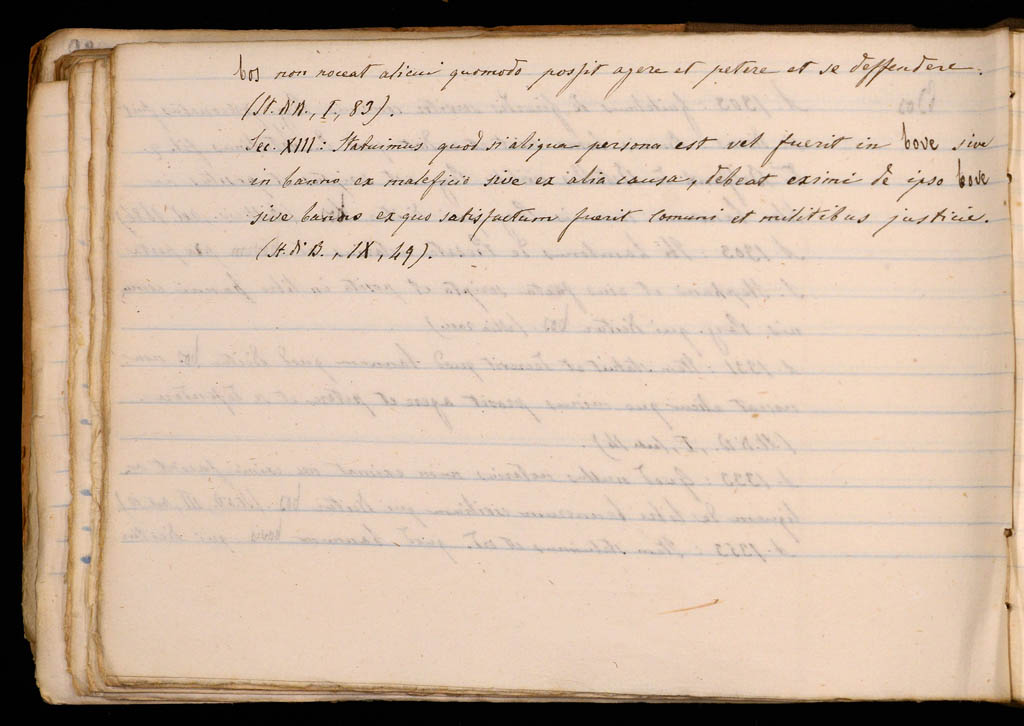 bos non noceat alicui quomodo possit agere et petere et se deffendere.
(St. di B., I, 83).
Sec. XIII: Statuimus quod si aliqua persona est vel fuerit in bove sive
in banno ex maleficio sive ex alia causa, debeat eximi de ipso bove
sive banno ex quo satisfactum fuerit Comuni et militibus justicie.
(St. di B., IX, 49).